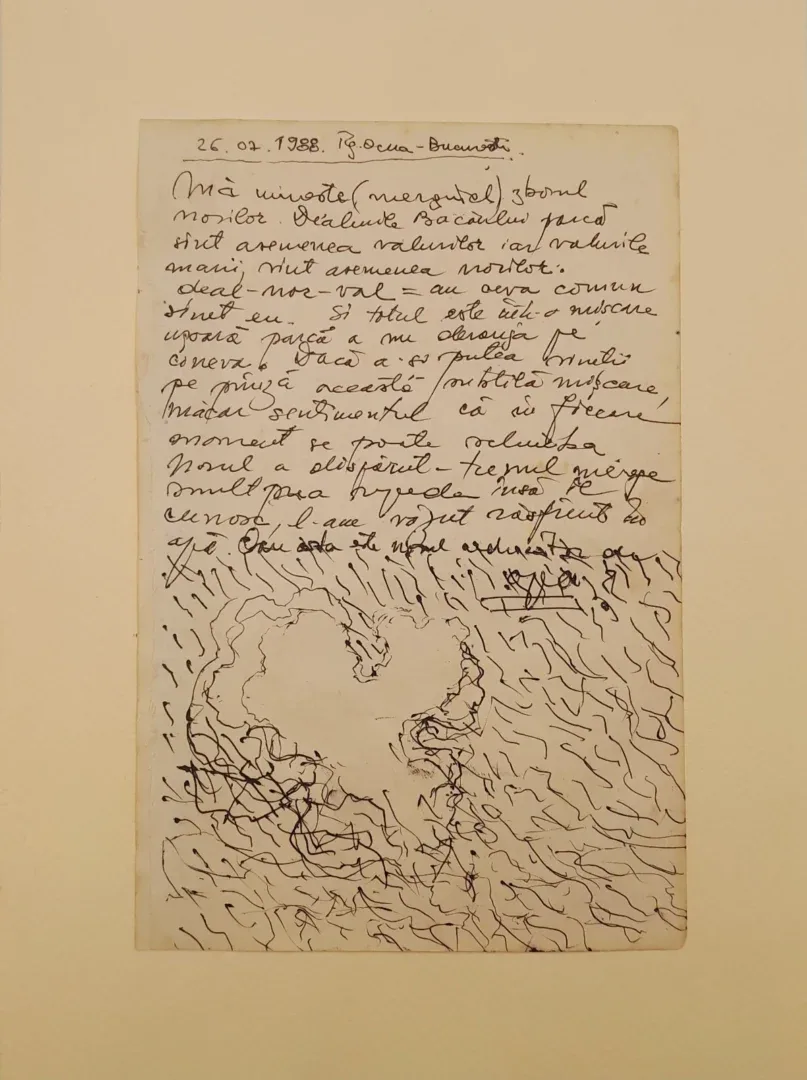 26.07.1988. Tg. Ocna - București.
Mă uimește (mergând) zborul
norilor. Dealurile Bacăului parcă
sînt asemenea valurilor iar valurile
mării, sînt asemenea norilor.
deal-nor-val = au ceva comun
sînt eu. Si totul este într-o mișcare
ușoară parcă a nu deranja pe
cineva. Dacă s-ar putea
pe pînză această subtilă mișcare,
măcar sentimentul că în fiecare
moment se poate schimba
Norul a dispărut - trenul merge
mult prea repede însă îl
cunosc, l-am văzut răsfrînt în
apă. Oare asta este norul aducător de
apă?